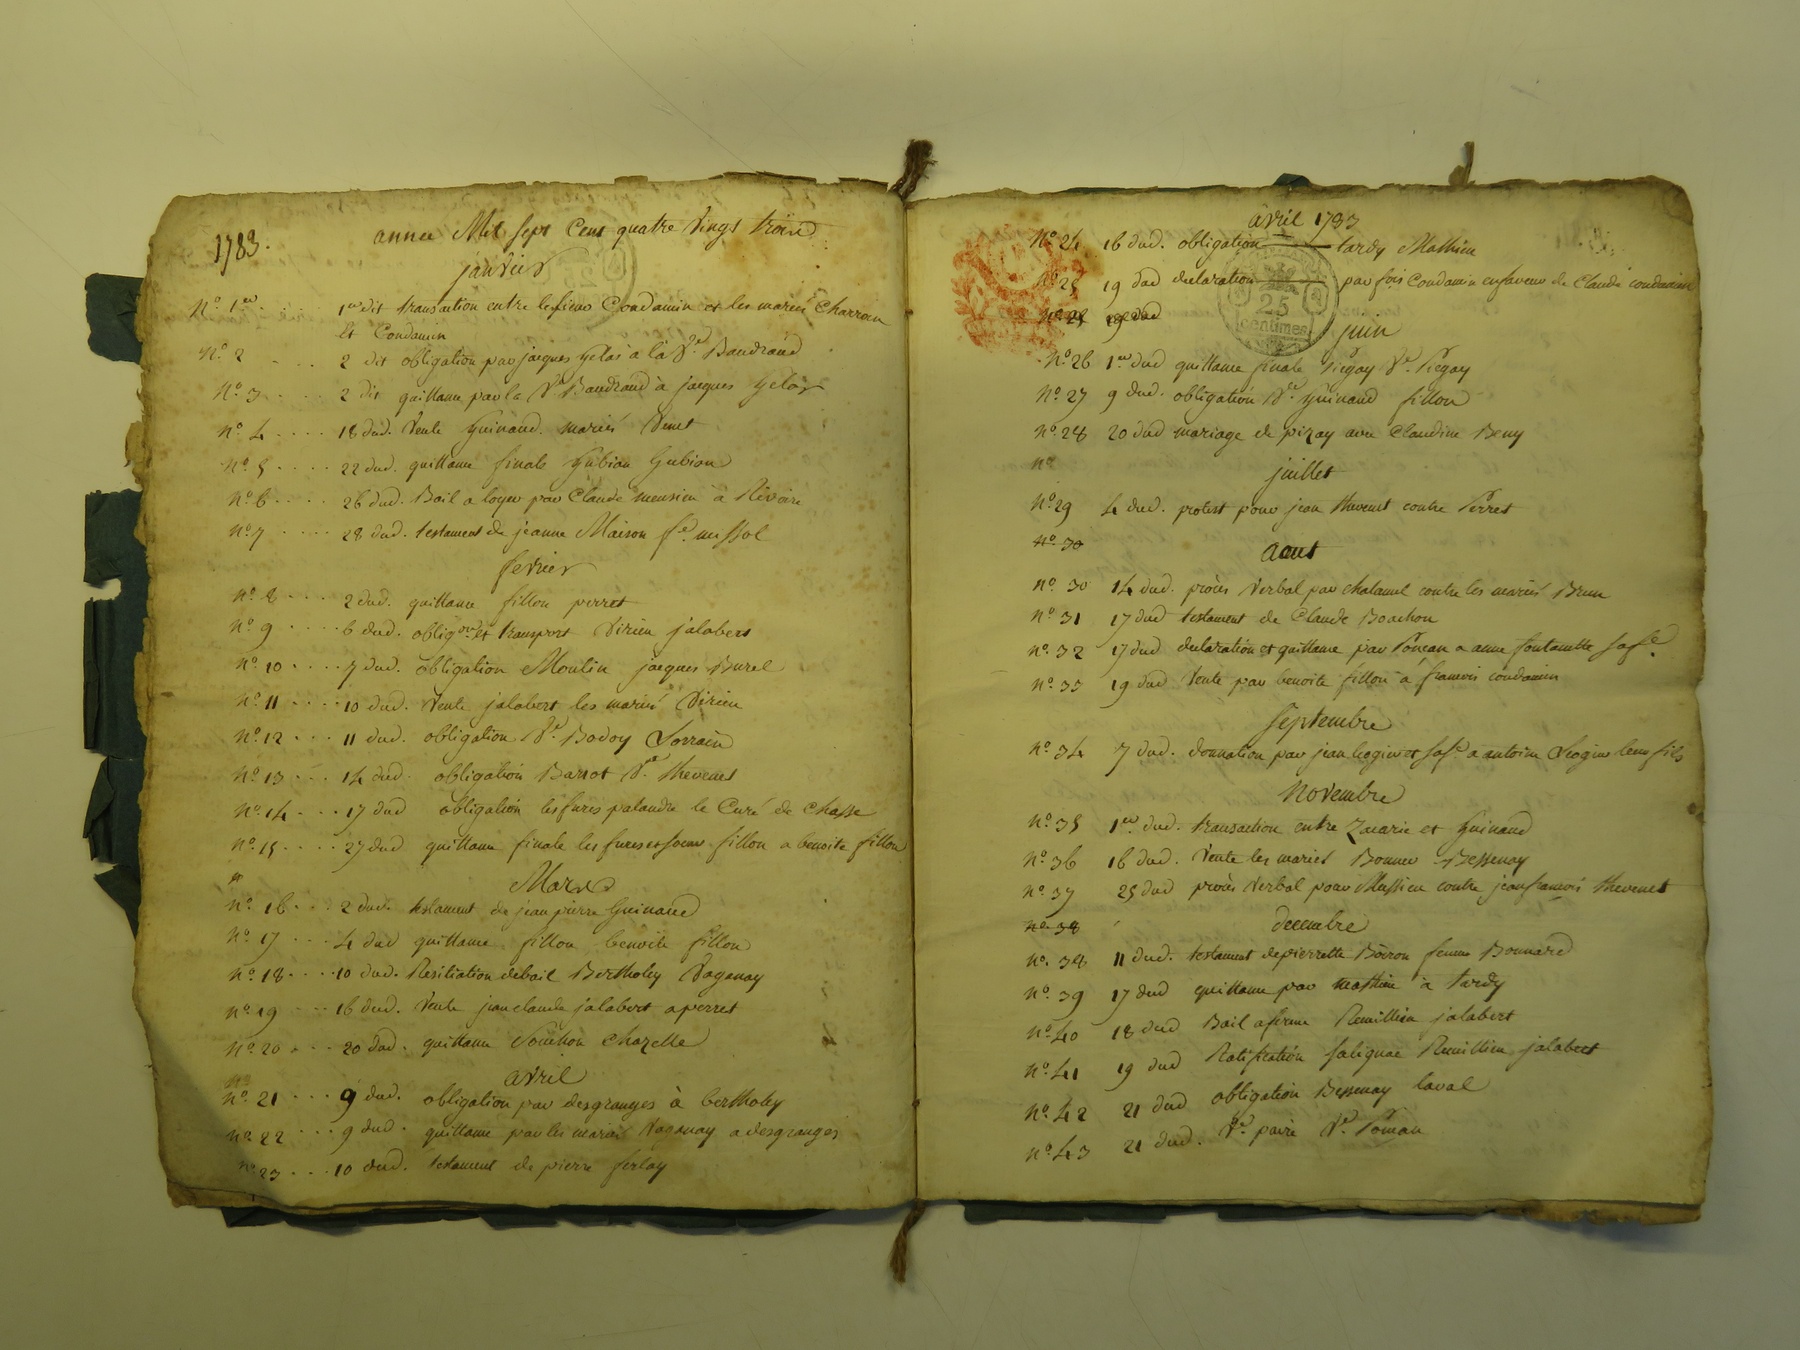 1783.
annee Mil sept Cent quatre vingt trois
janvier
N.º 1er 1er dit transaction entre les sieurs Condamin et les mariés Charron
et Condamin
N.º 2 2 dit obligation par jacques Gelas à la Ve. Baudrand
N.º 3 2 dit quittance par la Ve Baudrand à jacques Gelas
N.º 4 18 dud. Vente Guinand mariés Venet
N.º 5 22 dud. quittance finale Gubian Gubian
N.º 6 26 dud. Bail a loyer par Claude mensieu a Rivoire
N.º 7 28 dud. testament de jeanne Maison fe.
fevrier
N.º 8 2 dud. quittance fillon perret
N.º 9 6 dud. obligon et transport Virieu jalabert
N.º 10 7 dud. obligation Moulin jacques Burel
N.º 11 10 dud. Vente jalabert les mariés Virieu
N.º 12 11 dud. obligation Ve. Bodoy Lorrain
N.º 13 14 dud. obligation Barrot Ve. thevenet
N.º 14 17 dud obligation les freres palandre le Curé de Chasse
N.º 15 27 dud quittance finale les freres et soeur fillon a benoite fillon
Mars
N.º 16 2 dud. testament de jean pierre Guinand
N.º 17 4 dud quittance fillon benoite fillon
N.º 18 10 dud. Resiliation de bail Bertholey Vagenay
N.º 19 16 dud. Vente jean claude jalabert a perret
N.º 20 20 dud. quittance Souchon Chazelle
avril
N.º 21 9 dud. obligation par desgranges à bertholey
N.º 22 9 dud. quittance par les mariés Vagenay a desgranges
N.º 23 10 dud. testament de pierre ferlay
avril 1783
N.º 24 16 dud. obligation tardy Mathieu
N.º 25 19 dud declaration par fois Condamin en faveur de Claude condamin
25
centimes
N.º 25 19 dud
juin
N.º 26 1er dud quittance finale Piegay Ve. Piegay
N.º 27 9 dud. obligation Ve. Guinand fillon
N.º 28 20 dud mariage de pizay avec Claudine Beny
N.º
juillet
N.º 29 4 dud. protest pour jean thevenet contre Perret
N.º 30
Aout
N.º 30 14 dud. procès verbal par chalamel contre les mariés Brun
N.º 31 17 dud testament de Claude Boachon
N.º 32 17 dud declaration et quittance par Poncan a anne fontanelle sa fe.
N.º 33 19 dud Vente par benoite fillon à francois condamin
Septembre
N.º 34 7 dud. donnation par jean Leogier et sa fe a antoine Leogier leur fils
Novembre
N.º 35 1er dud. transaction entre Zacarie et Guinand
N.º 36 16 dud. Vente les mariés Bonner Bessenay
N.º 37 25 dud procès verbal pour Massieu contre jean francois thevenet
N.º 38
decembre
N.º 38 11 dud. testament de pierrette Boiron femme Bonnard
N.º 39 17 dud quittance par mathieu à tardy
N.º 40 18 dud Bail a ferme Remillieu jalabert
N.º 41 19 dud Ratification salignac Remillieu jalabert
N.º 42 21 dud obligation Bessenay laval
N.º 43 21 dud. Ve. Ve.